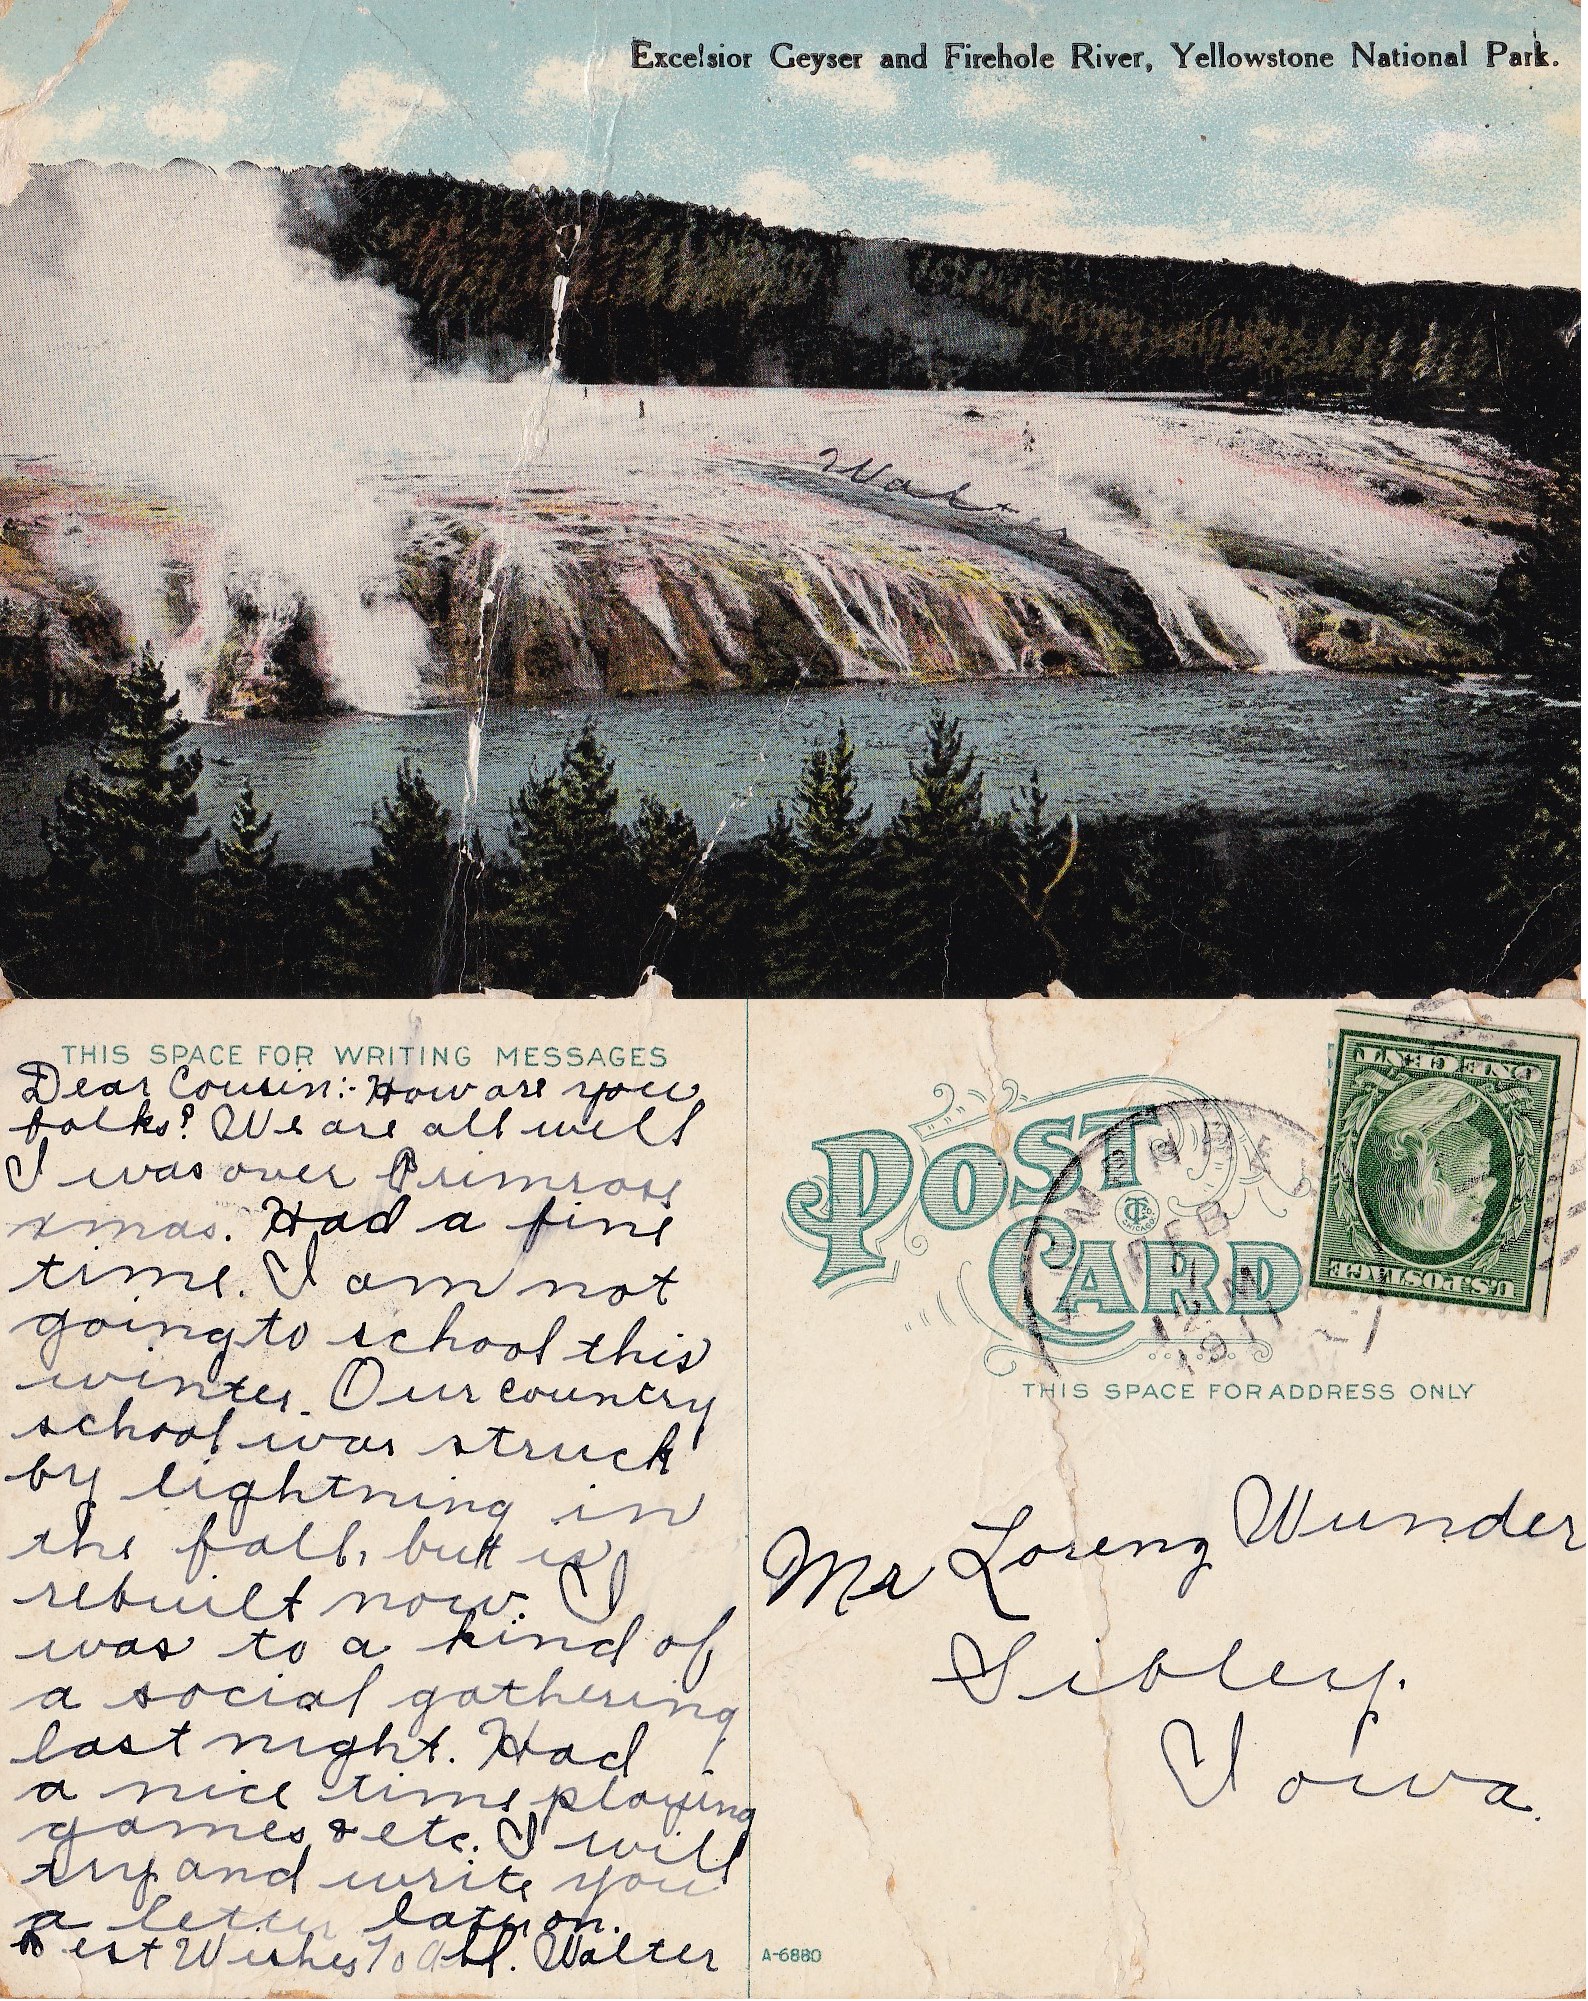 Excelsior Geyser and Firehole River, Yellowstone National Park.
Walter
THIS SPACE FOR WRITING MESSAGES
Dear Cousin:- How are you
folks? We are all well
I was over Primrose
xmas. Had a fine
time. I am not
going to school this
winter. Our country
school was struck
by lightning in
the fall, but is
rebuilt now. I
was to a kind of
a social gathering
last night. Had
a nice time playing
games & etc. I will
try and write you
a letter later on.
Best Wishes To All. Walter
POST
CARD
CHICAGO
FEB
12 M
1911
ONE CENT
U.S. POSTAGE
THIS SPACE FOR ADDRESS ONLY
Mr Loreng Wunder
Sibley.
Iowa.
A-6880